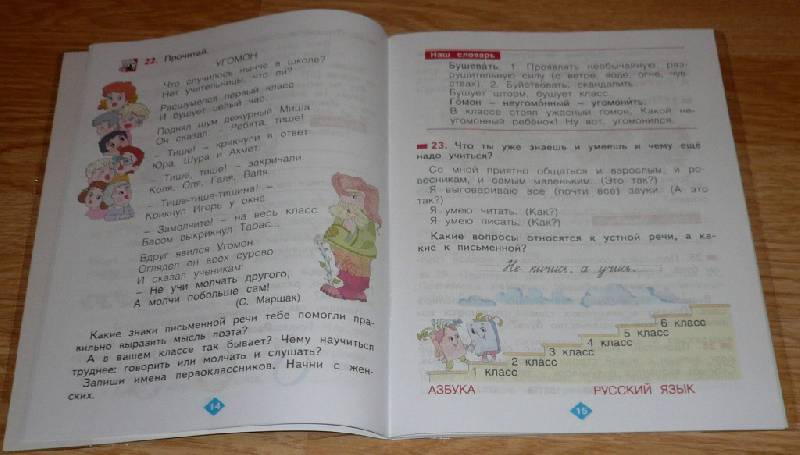 22. Прочитай.
УГОМОН
Что случилось нынче в школе?
Нет учительницы, что ли?
Расшумелся первый класс
И бушует целый час.
Поднял шум дежурный Миша
Он сказал: – Ребята, тише!
– Тише! – крикнули в ответ
Юра, Шура и Ахмет.
– Тише, тише! – закричали
Коля, Оля, Галя, Валя.
– Тише-тише-тишина! –
Крикнул Игорь у окна.
– Замолчите! – на весь класс
Басом выкрикнул Тарас...
Вдруг явился Угомон
Оглядел он всех сурово
И сказал ученикам:
– Не учи молчать другого,
А молчи побольше сам!
(С. Маршак)
Какие знаки письменной речи тебе помогли пра-
вильно выразить мысль поэта?
А в вашем классе так бывает? Чему научиться
труднее: говорить или молчать и слушать?
Запиши имена первоклассников. Начни с жен-
ских.
14
Наш словарь
Бушевать. 1. Проявлять необычайную, раз-
рушительную силу (о ветре, воде, огне, чув-
ствах). 2. Буйствовать, скандалить.
Бушует шторм, бушует класс.
Гомон – неугомонный – угомонить.
В классе стоял ужасный гомон. Какой не-
угомонный ребёнок! Ну вот, угомонился.
23. Что ты уже знаешь и умеешь и чему ещё
надо учиться?
Со мной приятно общаться и взрослым, и ро-
весникам, и самым маленьким. (Это так?)
Я выговариваю все (почти все) звуки. (А это
так?)
Я умею читать. (Как?)
Я умею писать. (Как?)
Какие вопросы относятся к устной речи, а ка-
кие к письменной?
Не кичись, а учись.
6 класс
5 класс
4 класс
3 класс
2 класс
1 класс
АЗБУКА РУССКИЙ ЯЗЫК
15